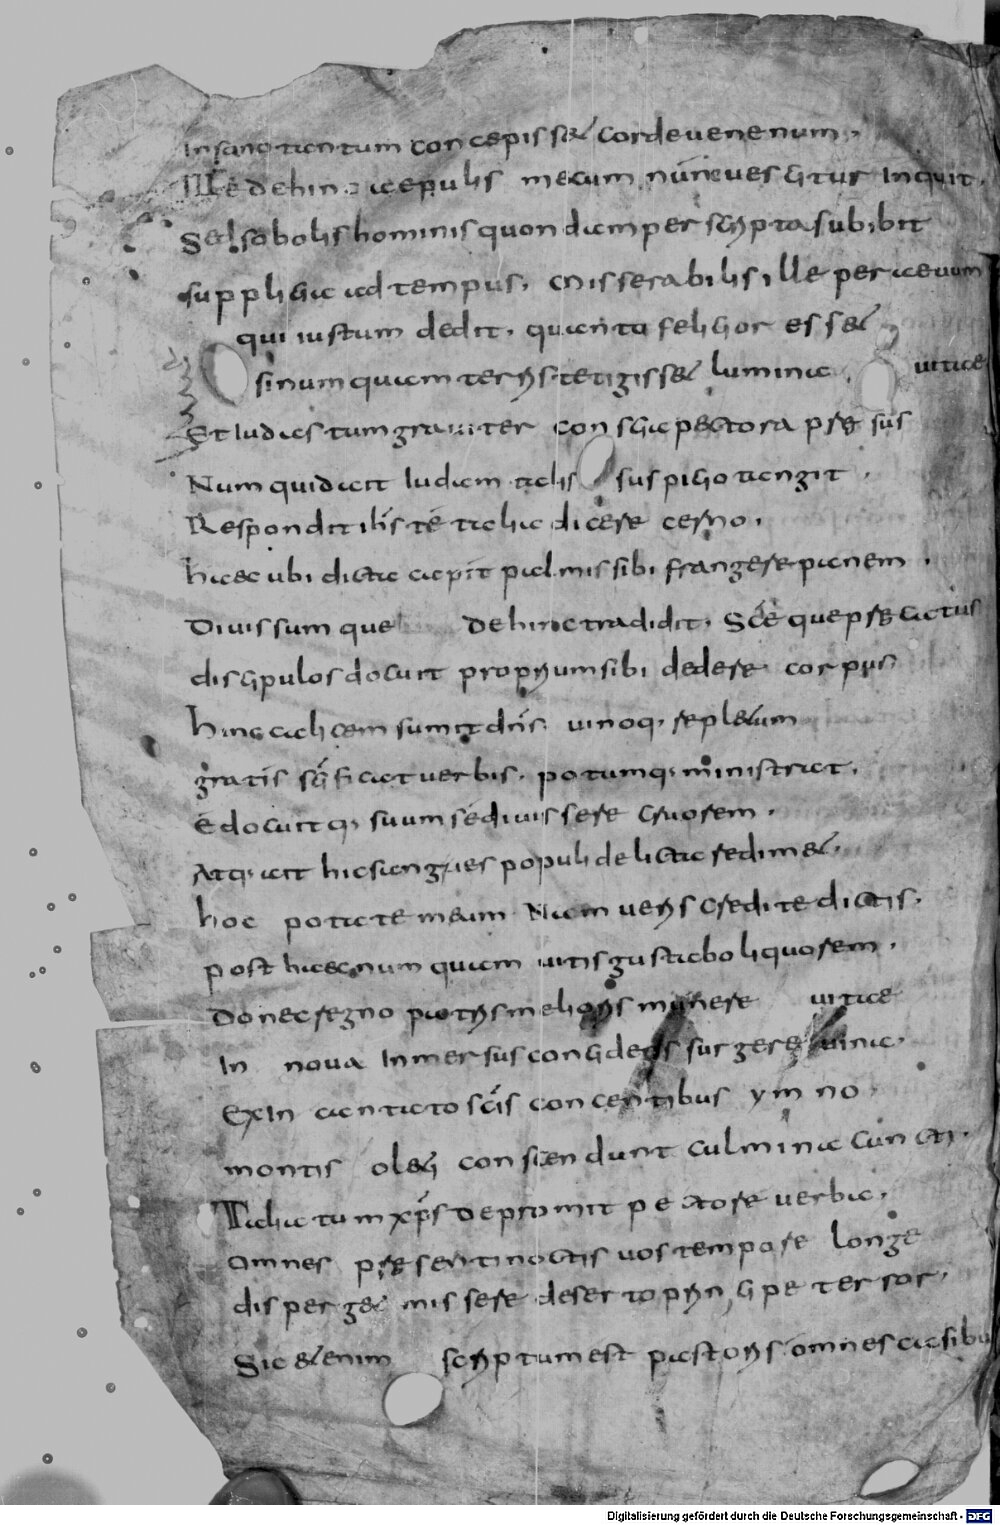 In sanctum tantum concepisset corde venenum.
Me dehinc epulis mecum nunc vescitur inquit.
Sed sobolis hominis quondam per scripta subibit
suppliciu ad tempus. miserabilis ille per aevum
qui iustum dedit. quanto felicior esset
si numquam terris tetigisset lumina vitae
Et Iudas tum graviter conscia pectora pressus
Num quid ait Iudam talis suspicio tangit.
Respondit ihs te talia dicere cerno.
haec ubi dicta capit palmis sibi frangere panem.
Divissumque dehinc tradidit. Sceque precatus
discipulos docuit proprium sibi dedere corpus
hinc calicem sumit dns vinoq. repletum
gratis scificat verbis. potumq. ministrat.
edocuitq. suum se divissere cruorem.
Atq. ait hic sangues populi delicta redimet.
hoc potate meum Nam veris credite dictis.
post haec numquam vitis gustabo liquorem.
Donec regno patris melioris munere vitae
In nova Inmersus concideris surgere vina.
Exin cantato scis concentibus ymno.
montis oleti conscendunt culmina cuncti.
Talia tum xps depromit pectore verba.
omnes presenti noctis vos tempore longe
disperget missere deserto principe terror.
Sic etenim scriptum est pastoris omnes casibu